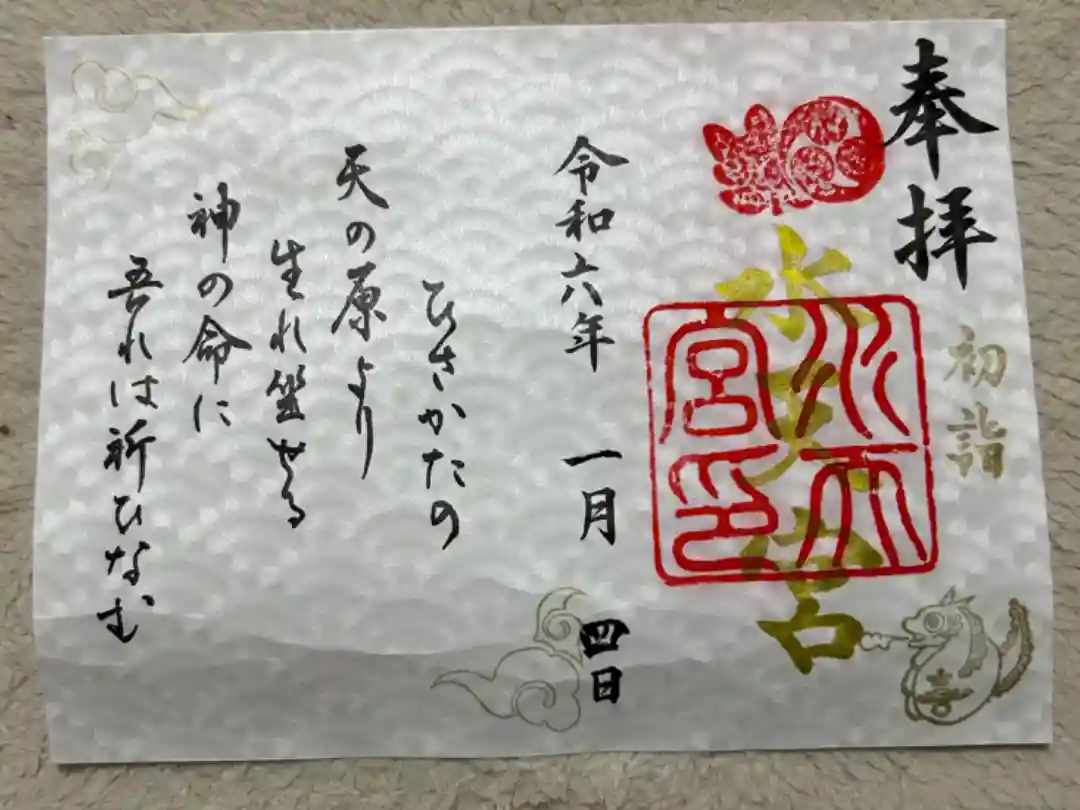 奉拝
初詣
水天宮
水天宮印
喜
令和六年 一月 四日
ひさかたの
天の原より
生れ坐せる
神の命に
吾れは祈ひなむ